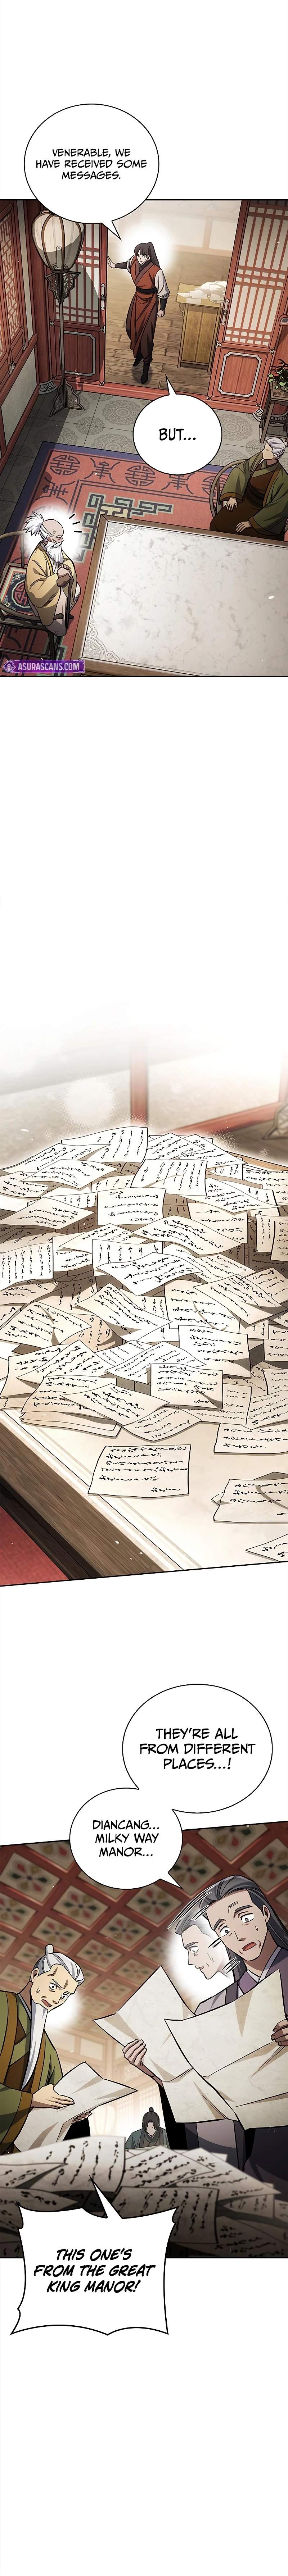 VENERABLE, WE
HAVE RECEIVED SOME
MESSAGES.
BUT...
ASURASCANS.COM
THEY'RE ALL
FROM DIFFERENT
PLACES...!
DIANCANG...
MILKY WAY
MANOR...
THIS ONE'S
FROM THE GREAT
KING MANOR!